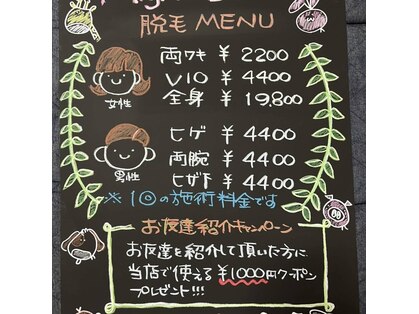 脱毛 MENU
女性
両ワキ ¥ 2200
VIO ¥ 4400
全身 ¥ 19.800
男性
ヒゲ ¥ 4400
両腕 ¥ 4400
ヒザ下 ¥ 4400
※ 1回の施術料金です
お友達紹介キャンペーン
お友達を紹介して頂いた方に
当店で使える¥1000円クーポン
プレゼント!!!